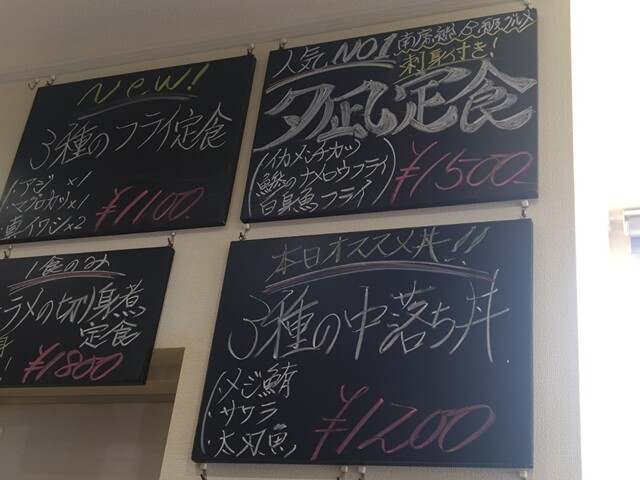 New!
3種のフライ定食
・アジ×1
・マグロカツ×1
・真イワシ×2
¥1100
人気NO1
刺身付き!
夕凪定食
イカメンチカツ
鯵のナメロウフライ
白身魚フライ
¥1500
1食のみ
ラメの切り身煮
定食
¥1800
本日オススメ丼!!
3種の中落ち丼
・メジ鮪
・サワラ
・太刀魚
¥1200